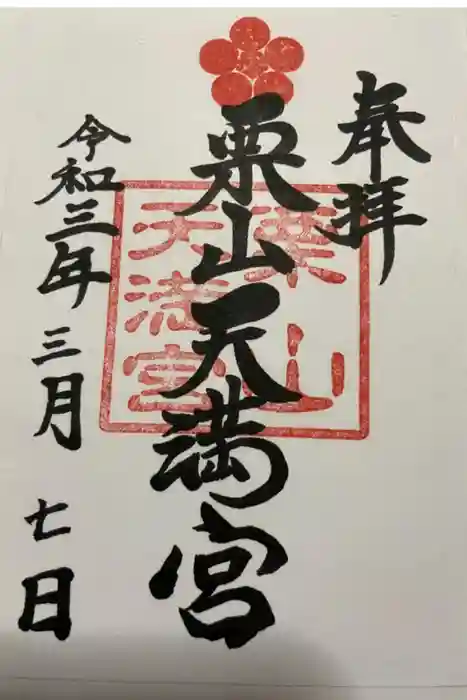 奉拝
栗山天満宮
栗山
天満宮
令和三年三月七日